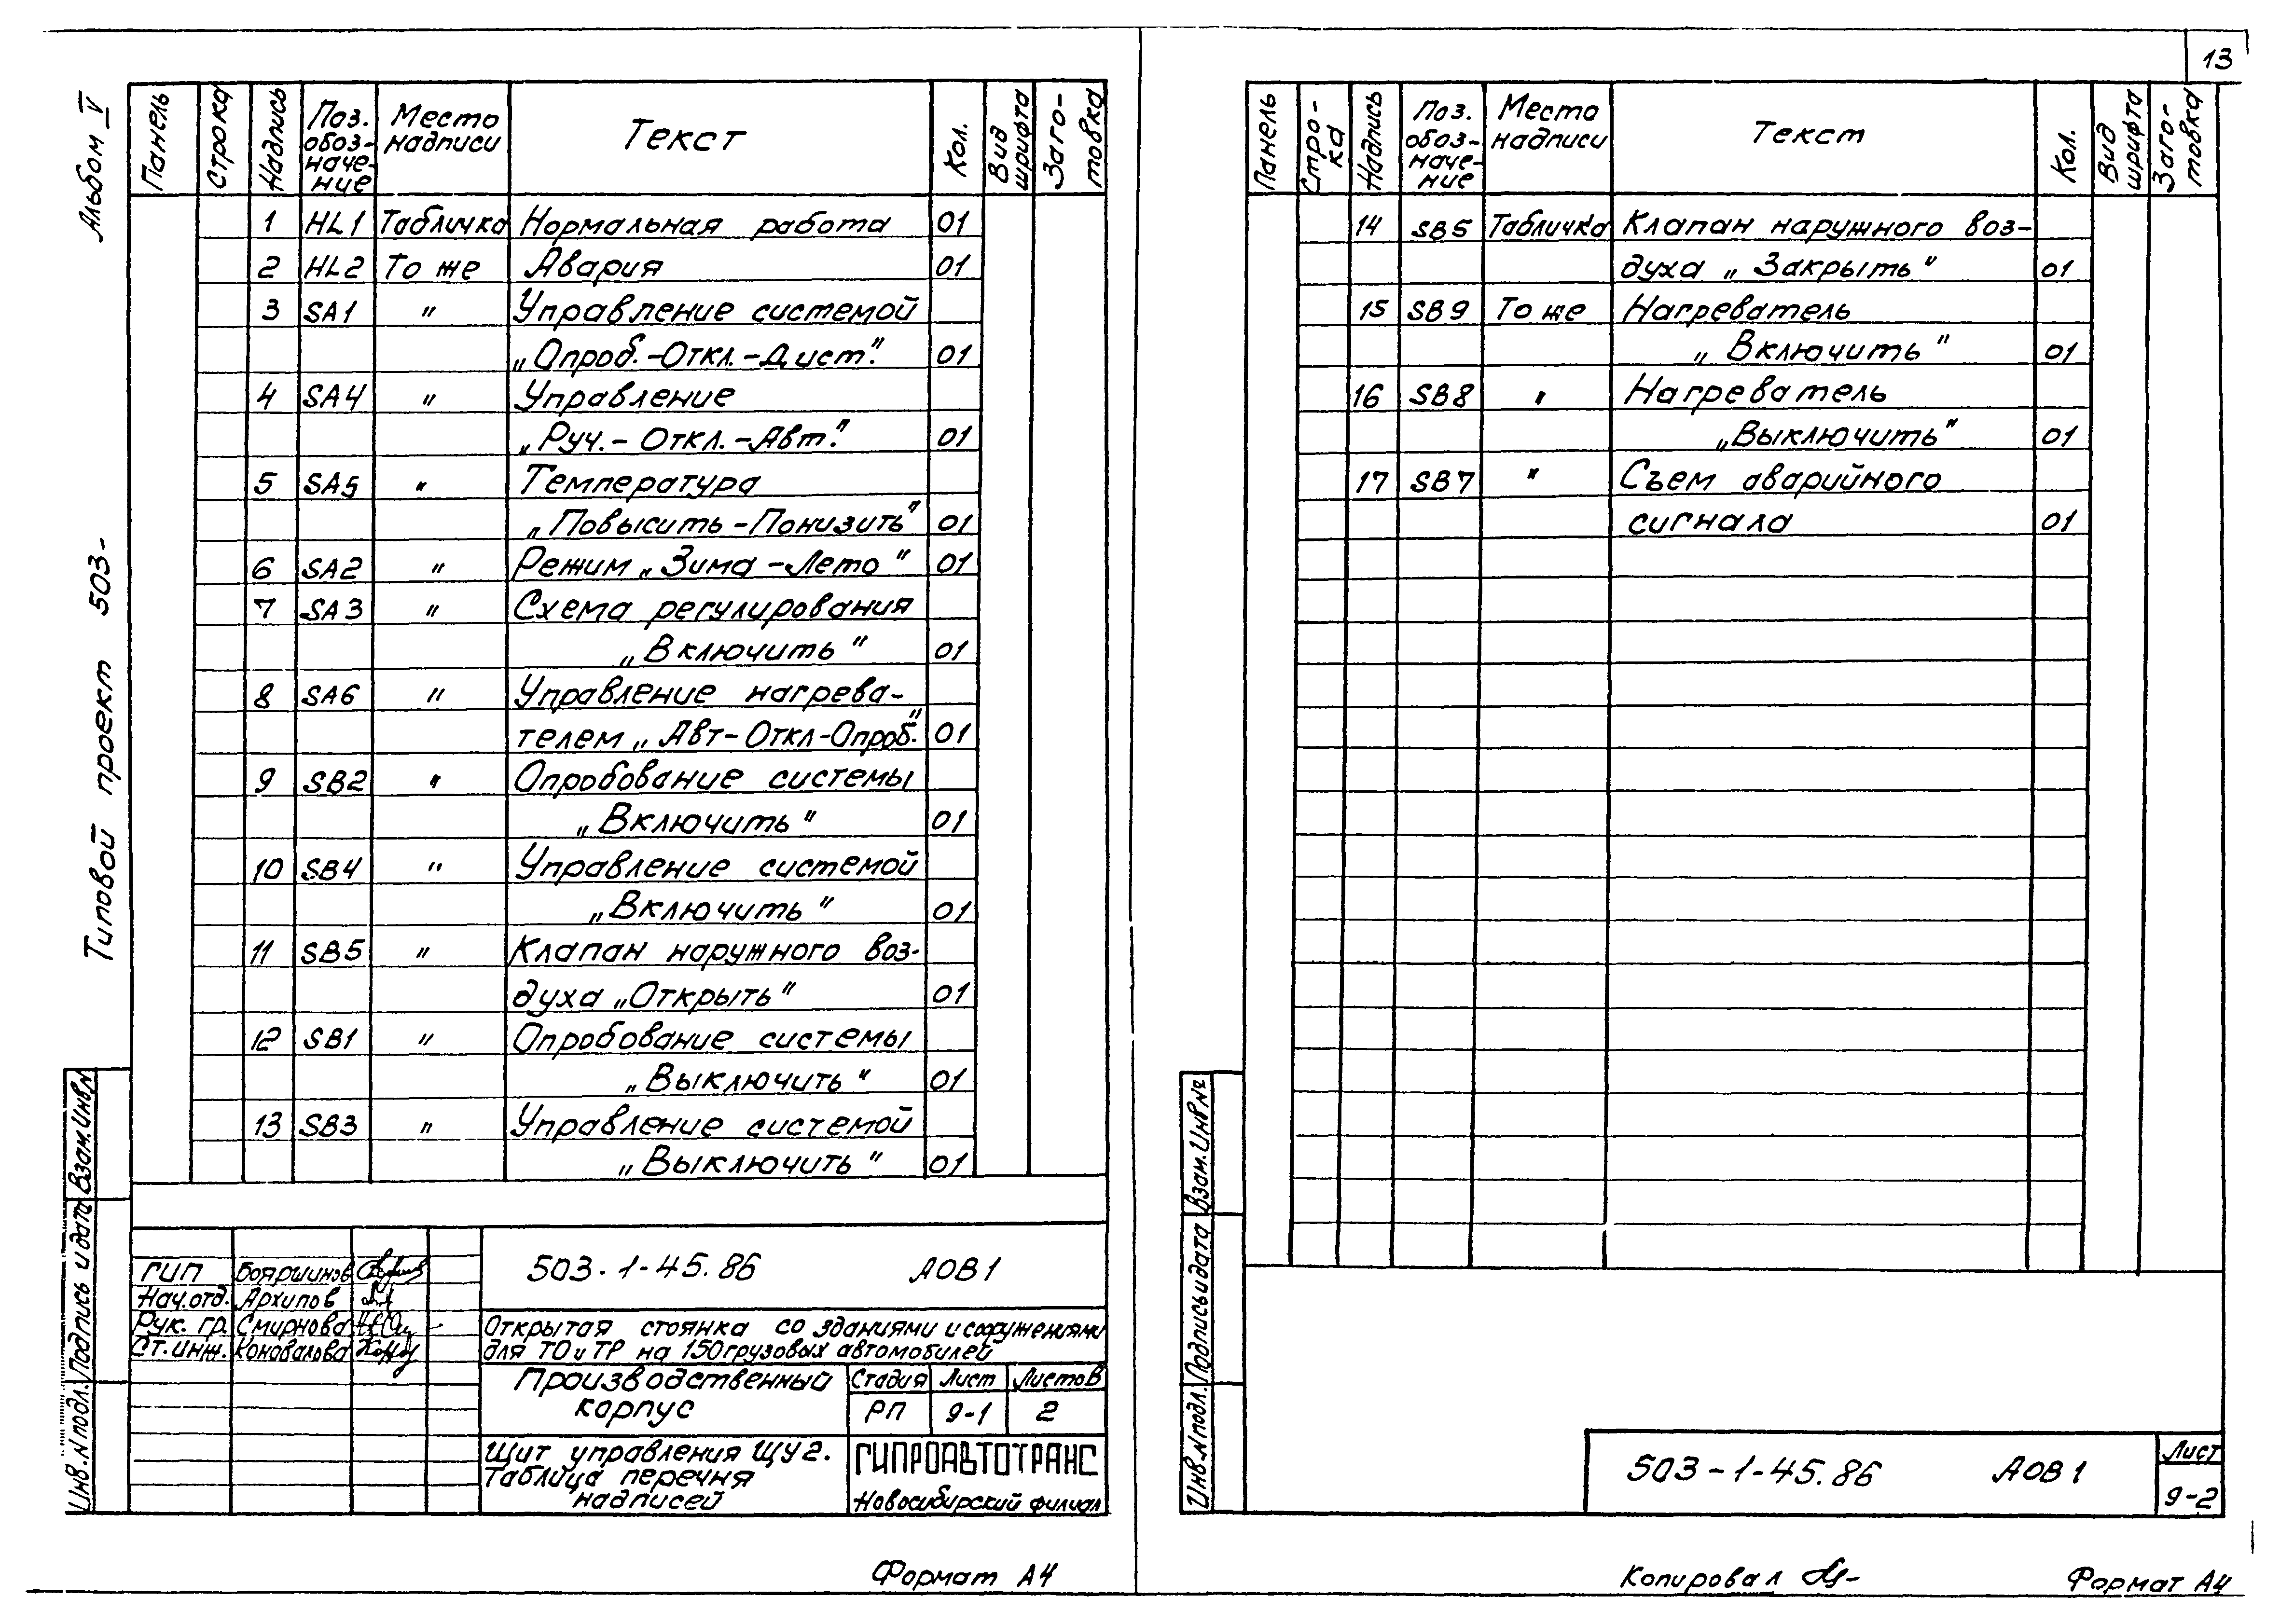 13
Альбом V
Типовой проект 503-
Панель Строка Надпись Поз. обозначение Место надписи Текст Кол. Вид шрифта Заготовка
1 HL1 Табличка Нормальная работа 01
2 HL2 То же Авария 01
3 SA1 " Управление системой
„Опроб.-Откл.-Дист." 01
4 SA4 " Управление
„Руч.-Откл.-Авт." 01
5 SA5 " Температура
„Повысить-Понизить" 01
6 SA2 " Режим „Зима-Лето" 01
7 SA3 " Схема регулирования
„Включить" 01
8 SA6 " Управление нагрева-
телем „Авт-Откл-Опроб." 01
9 SB2 " Опробование системы
„Включить" 01
10 SB4 " Управление системой
„Включить" 01
11 SB5 " Клапан наружного воз-
духа „Открыть" 01
12 SB1 " Опробование системы
„Выключить" 01
13 SB3 " Управление системой
„Выключить" 01
Взам.Инв.N
Подпись и дата
Инв.N подл.
503-1-45.86 АОВ1
ГИП Бояршинов
Нач.отд. Архипов
Рук. гр. Смирнова
Ст.инж. Коновалова
Открытая стоянка со зданиями и сооружениями
для ТО и ТР на 150 грузовых автомобилей
Производственный
корпус
Стадия Лист Листов
РП 9-1 2
Щит управления ЩУ2.
Таблица перечня
надписей
ГИПРОАВТОТРАНС
Новосибирский филиал
Формат А4
Панель Стро-ка Надпись Поз. обоз-наче-ние Место надписи Текст Кол. Вид шрифта Заго-товка
14 SB5 Табличка Клапан наружного воз-
духа „Закрыть" 01
15 SB9 То же Нагреватель
„Включить" 01
16 SB8 " Нагреватель
„Выключить" 01
17 SB7 " Съем аварийного
сигнала 01
Взам.Инв№
Подпись и дата
Инв.N подл.
503-1-45.86 АОВ1
Лист
9-2
Копировал
Формат А4